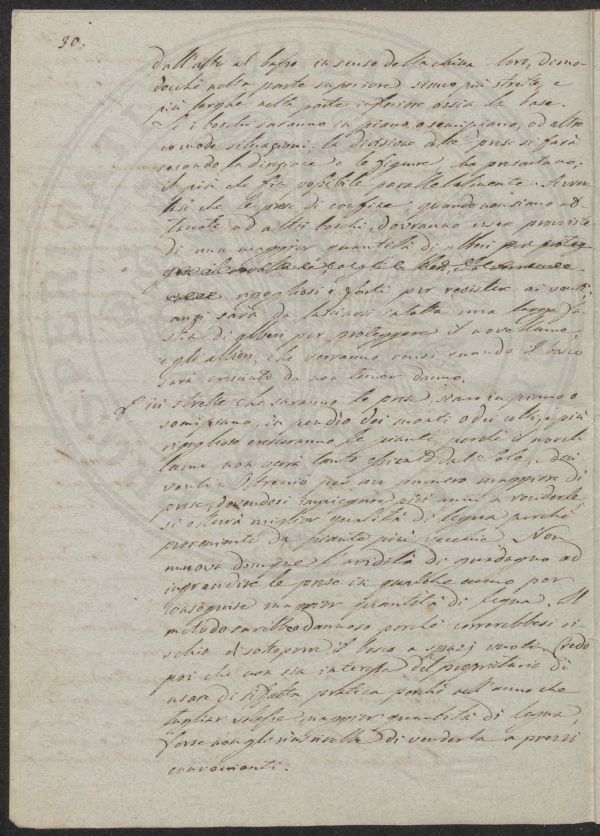 30.
dall'alto al basso in senso della china loro, dimo-
dochè nella parte superiore sieno più strette, e
più larghe nella parte inferiore ossia la base.
Se i boschi saranno in piano o semipiano, od altre
comode situazioni, la divisione delle prese si farà
secondo la direzione e le figure, che presentano,
il più che fia possibile parallelamente. Avver-
tasi che le prese di confine, quando non siano at-
taccate ad altri boschi, dovranno esser provviste
di una maggior quantità di alberi per
rigogliosi e forti per resistere ai venti,
anzi sarà da lasciarsi intatta una larga fa-
scia di alberi per proteggere il novellame,
e gli alberi, che verranno resi quando il bosco
sarà cresciuto da non temer danno.
Più strette che saranno le prese, siano in piano o
semipiano, in pendio dei monti o dei colli, e più
rigogliose cresceranno le piante, perchè il novel-
lame non verrà tanto offeso dal Sole, e dai
venti. Oltreciò per un numero maggiore di
prese, dovendosi impiegare più anni a reciderle,
si otterrà miglior qualità di legna perchè
proveniente da piante più vecchie. Non
muova dunque l'avidità di guadagno ad
ingrandire le prese in qualche anno per
conseguire maggior quantità di legna. Il
metodo sarebbe dannoso perchè correrebbesi ri-
schio di sottoporre il bosco a spazj vuoti. Credo
poi che non sia interesse del proprietario di
usare di siffatta pratica perchè nell'anno che
tagliar volesse maggior quantità di legna,
forse non gli riuscirebbe di venderla a prezzi
convenienti.